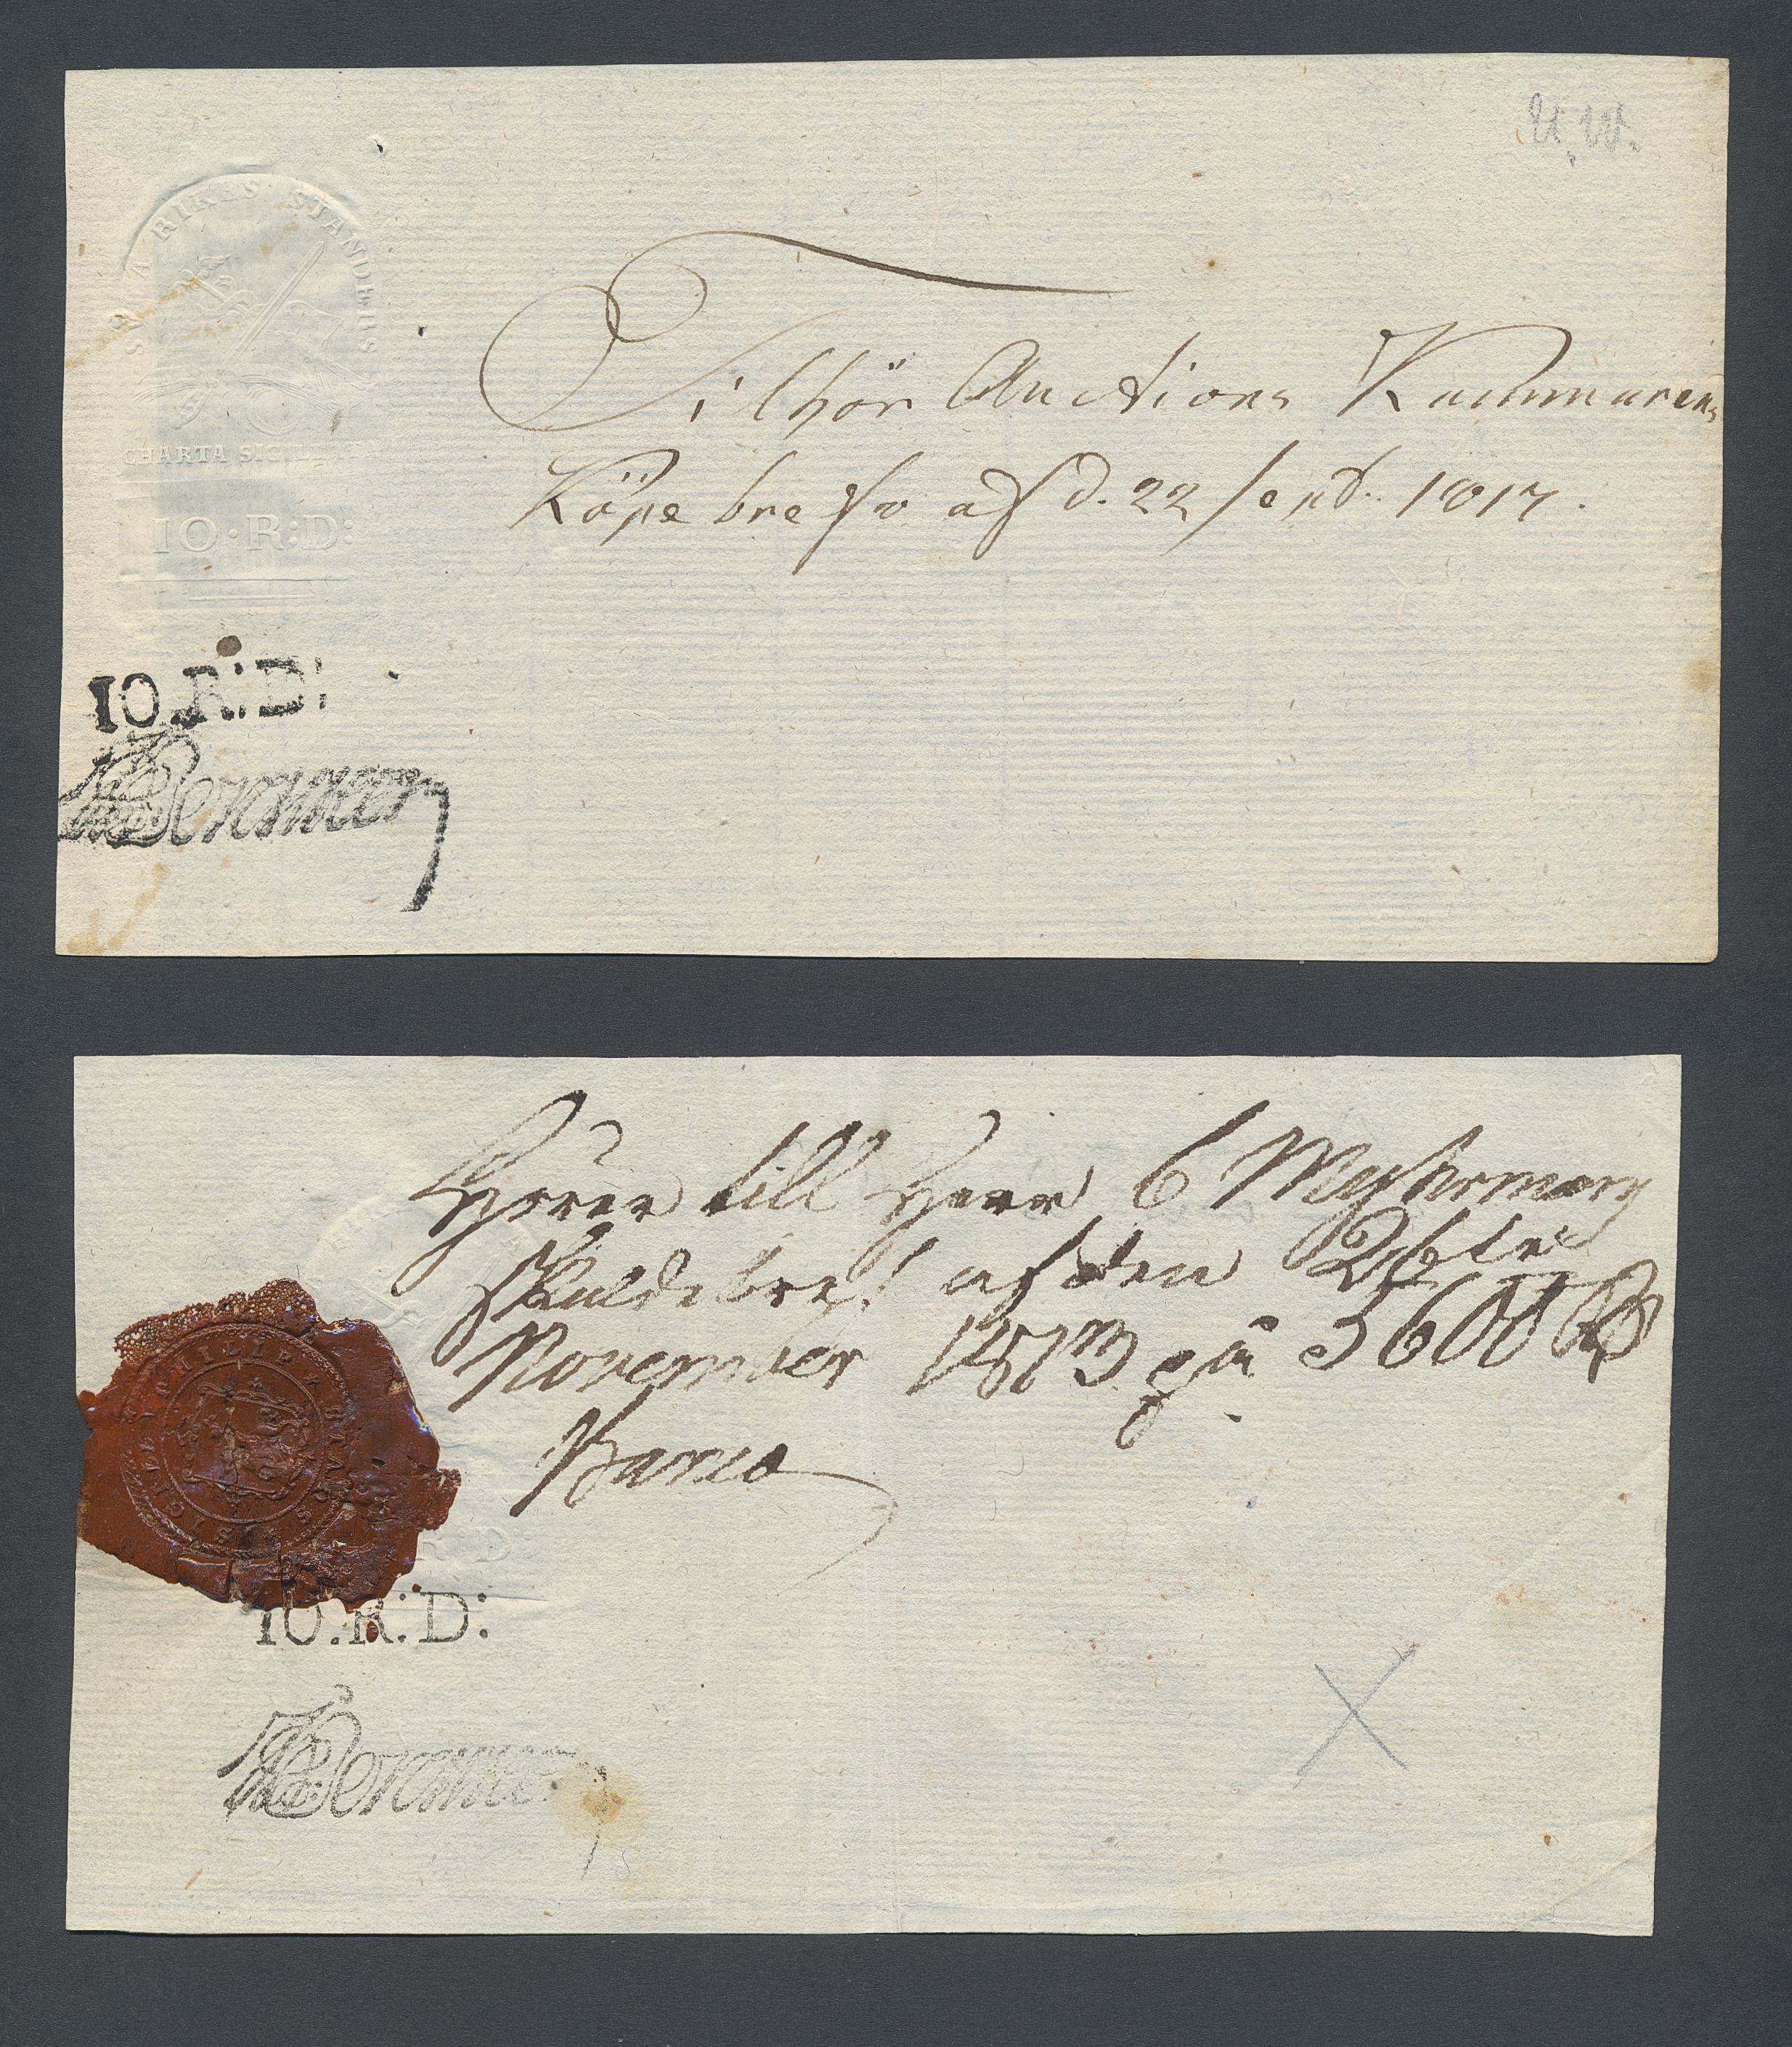 U. W.
SWEA RIKES STÄNDERS
CHARTA SIGILLAT
10·R:D:
Tilhör Auctions Kammarens
Köpe bref v af d. 22 Sept. 1817.
10.R:D:
Hörer till Herr C
Skuldebref af den 26te
November 1813 på 3600
Banco
R D
10.R:D: